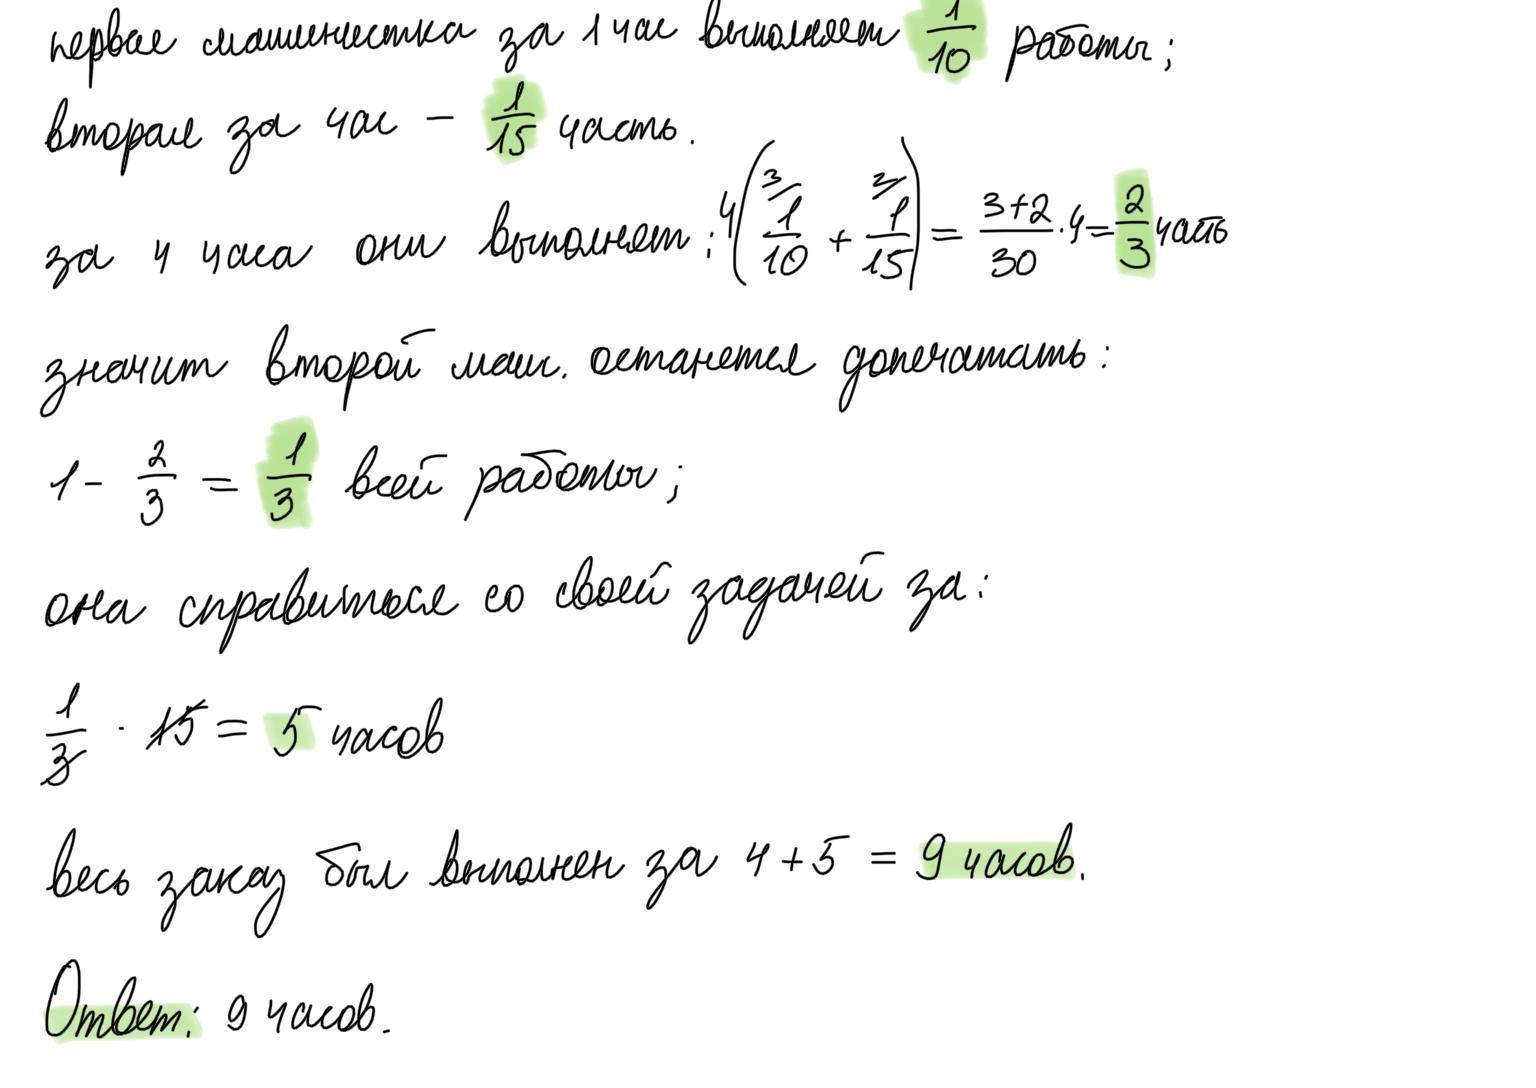 первая машинистка за 1 час выполняет 1/10 работы;
вторая за час – 1/15 часть.
за 4 часа они выполнят: 4(3/ 1/10 + 2/ 1/15) = 3+2/30 · 4 = 2/3 часть
значит второй маш. останется допечатать:
1 - 2/3 = 1/3 всей работы;
она справиться со своей задачей за:
1/3 · 15 = 5 часов
весь заказ был выполнен за 4 + 5 = 9 часов.
Ответ: 9 часов.